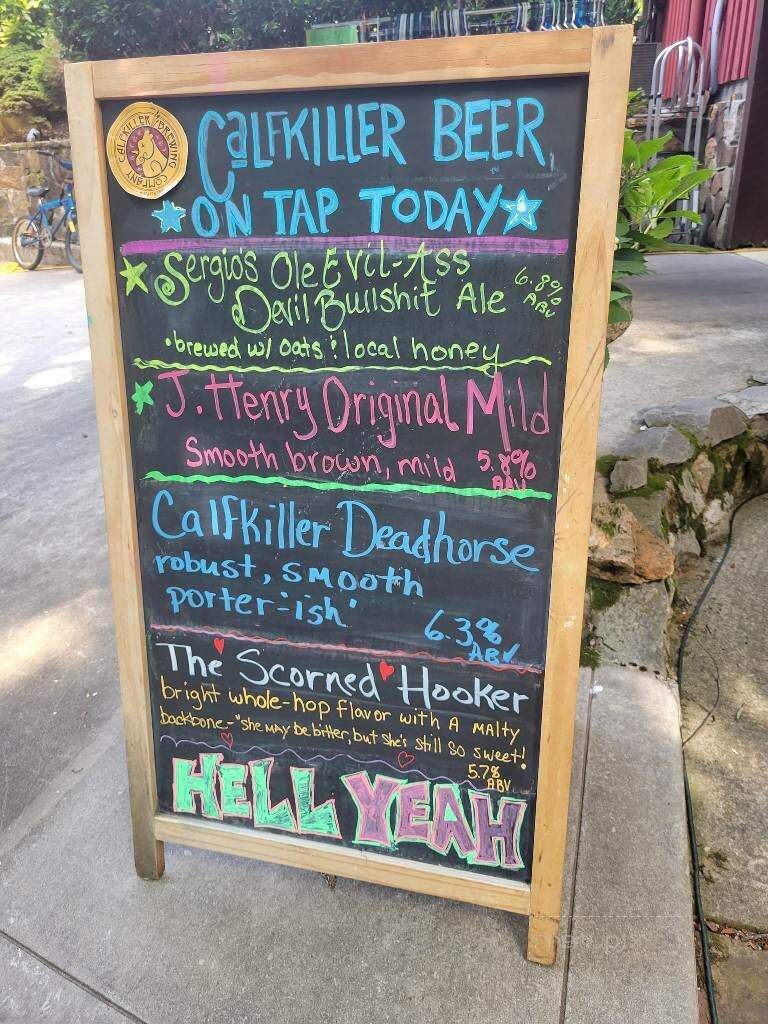 CALFKILLER BREWING
COMPANY
CalfKILLER BEER
ON TAP TODAY
Sergio's Ole Evil-Ass
Devil Bullshit Ale
6.8%
ABV
• brewed w/ oats & local honey
J. Henry Original Mild
Smooth brown, mild
5.8%
ABV
Calfkiller Deadhorse
robust, smooth
porter-'ish'
6.3%
ABV
The Scorned Hooker
bright whole-hop flavor with A malty
backbone- "she may be bitter, but she's still so sweet!
5.7%
ABV
HELL YEAH